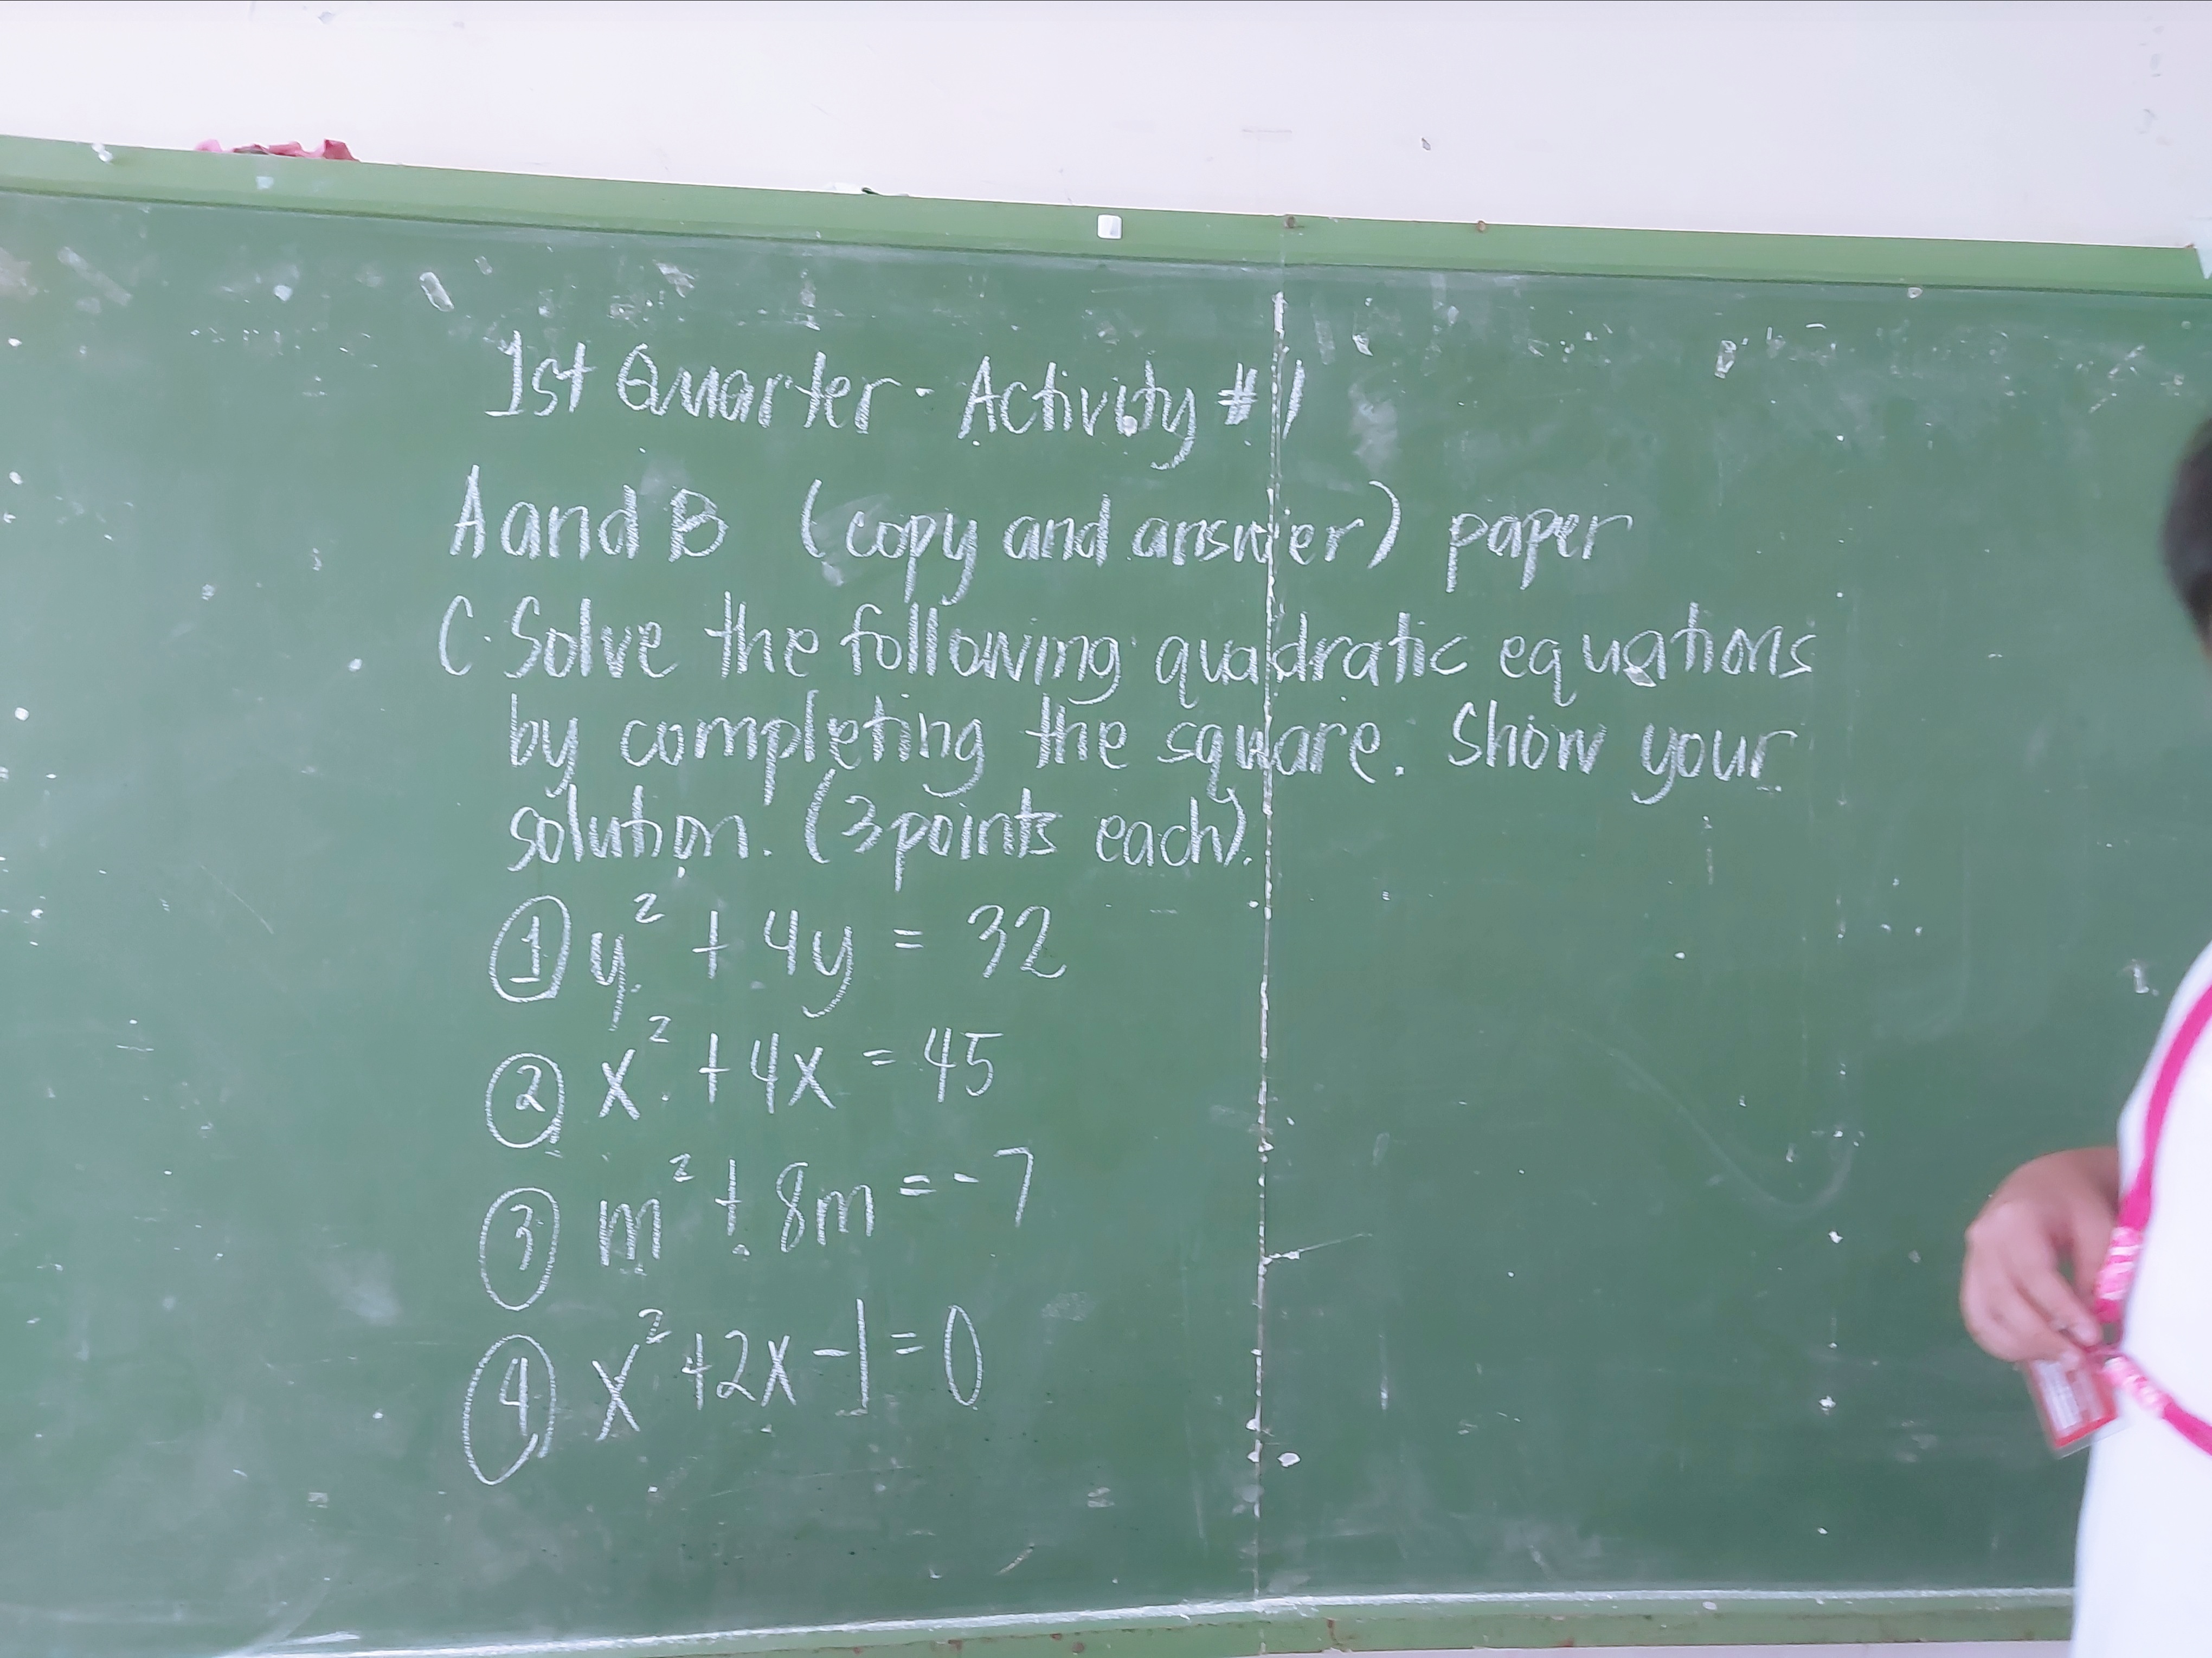 1st Quarter - Activity #1
A and B (copy and answer) paper
C. Solve the following quadratic equations
by completing the square. Show your
solution. (3 points each).
① y² + 4y = 32
② x² + 4x = 45
③ m² + 8m = -7
④ x² + 2x - 1 = 0